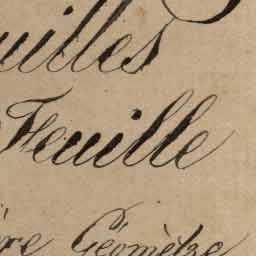 uilles
Feuille
re Géomètre